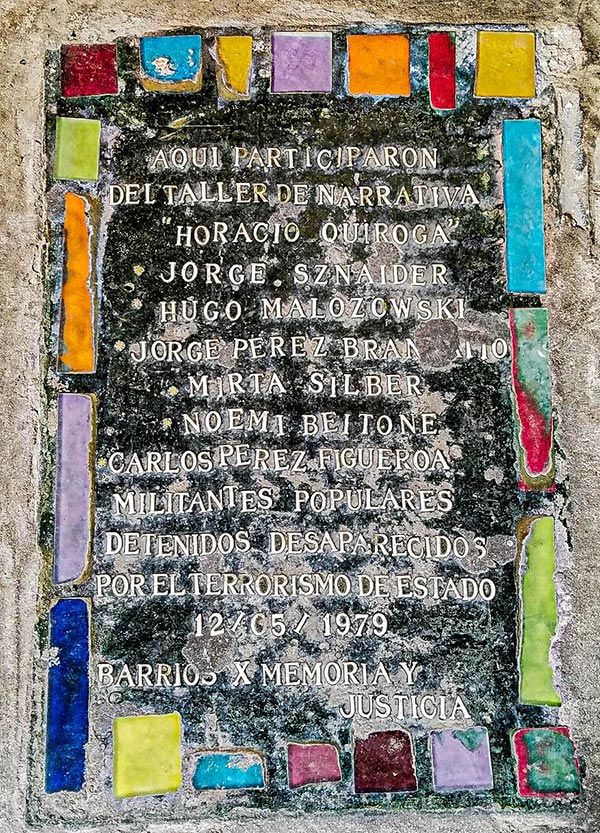 AQUI PARTICIPARON
DEL TALLER DE NARRATIVA
"HORACIO QUIROGA"
JORGE SZNAIDER
HUGO MALOZOWSKI
JORGE PEREZ
MIRTA SILBER
NOEMI BEITONE
CARLOS PEREZ FIGUEROA
MILITANTES POPULARES
DETENIDOS DESAPARECIDOS
POR EL TERRORISMO DE ESTADO
12/05/1979
BARRIOS X MEMORIA Y
JUSTICIA